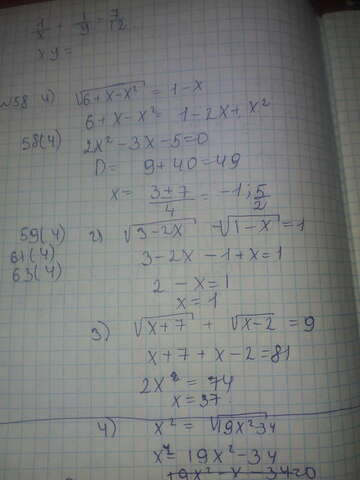 1/x + 1/y = 7/12
xy =
№58 4) √6+x-x² = 1-x
6+x-x² = 1-2x+x²
58(4) 2x²-3x-5=0
D= 9+40=49
x= 3±7/4 = -1; 5/2
59(4) 2) √3-2x - √1-x = 1
61(4) 3-2x-1+x=1
63(4)
2-x=1
x=1
3) √x+7 + √x-2 = 9
x+7+x-2=81
2x = 74
x=37
4) x² = √19x²-34
x⁴= 19x²-34